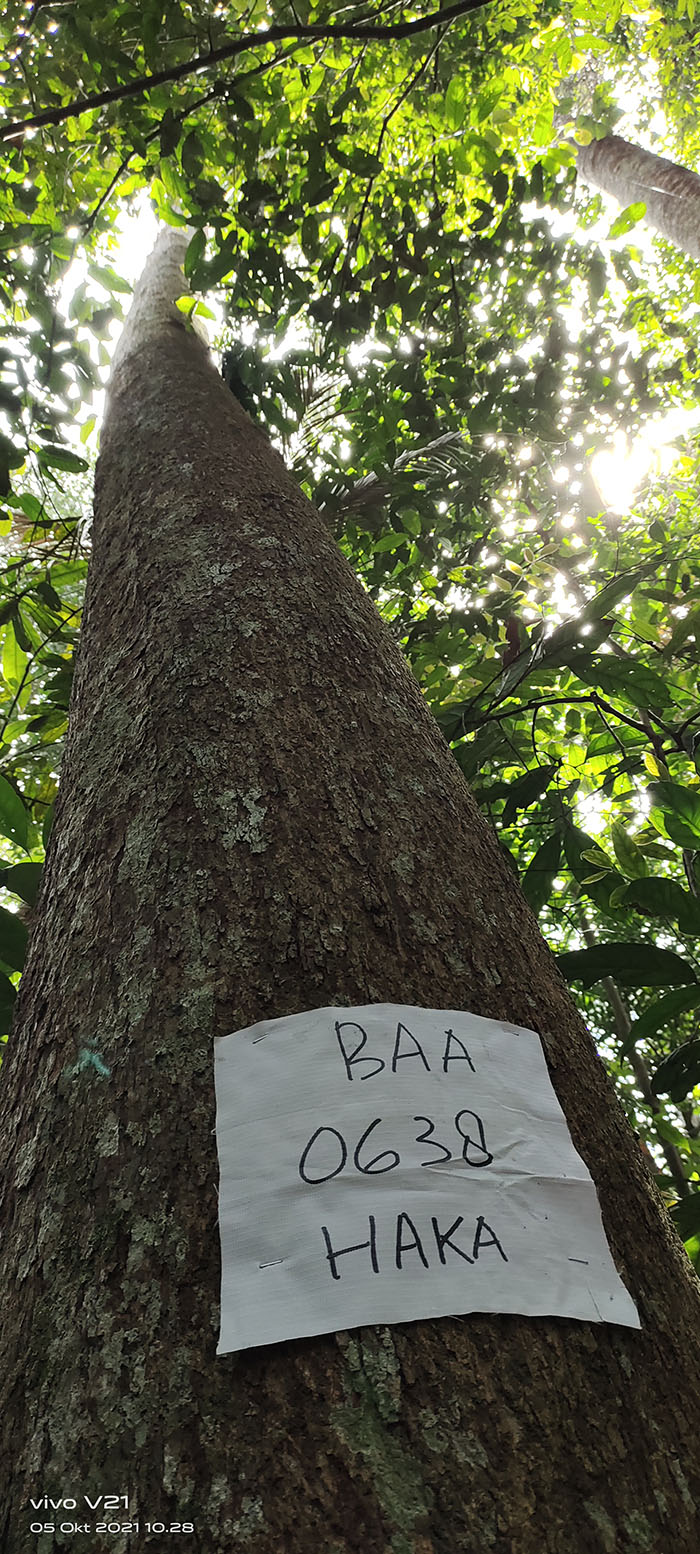 BAA
0638
HAKA
vivo V21
05 Okt 2021 10.28